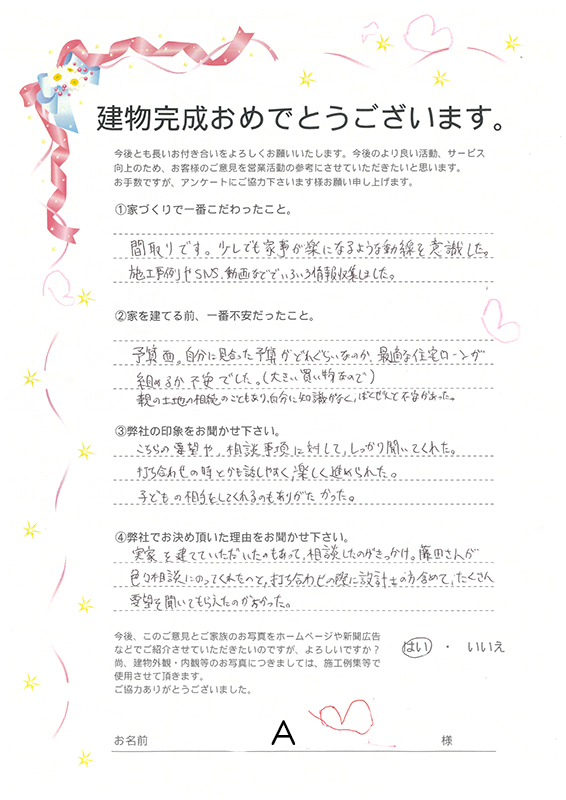 建物完成おめでとうございます。
今後とも長いお付き合いをよろしくお願いいたします。今後のより良い活動、サービス
向上のため、お客様のご意見を営業活動の参考にさせていただきたいと思います。
お手数ですが、アンケートにご協力下さいます様お願い申し上げます。
①家づくりで一番こだわったこと。
間取りです。少しでも家事が楽になるような動線を意識した。
施工事例やSNS、動画などでいろいろ情報収集しました。
②家を建てる前、一番不安だったこと。
予算面。自分に見合った予算がどれぐらいなのか、最適な住宅ローンが
組めるか不安でした。(大きい買い物なので)
親の土地の相続のこともあり、自分に知識がなく、ばくぜんと不安があった。
③弊社の印象をお聞かせ下さい。
こちらの要望や、相談事項に対して、しっかり聞いてくれた。
打ち合わせの時とかも話しやすく、楽しく進められた。
子どもの相手をしてくれるのもありがたかった。
④弊社でお決め頂いた理由をお聞かせ下さい。
実家を建てていただいたのもあって、相談したのがきっかけ。藤田さんが
色々相談にのってくれたのと、打ち合わせの際に設計士の方含めて、たくさん
要望を聞いてもらえたのが良かった。
今後、このご意見とご家族のお写真をホームページや新聞広告
などでご紹介させていただきたいのですが、よろしいですか?
はい ・ いいえ
尚、建物外観・内観等のお写真につきましては、施工例集等で
使用させて頂きます。
ご協力ありがとうございました。
お名前 A 様